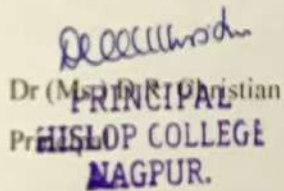 Dr (Ms.) D.R. Christian
Principal
PRINCIPAL
HISLOP COLLEGE
NAGPUR.